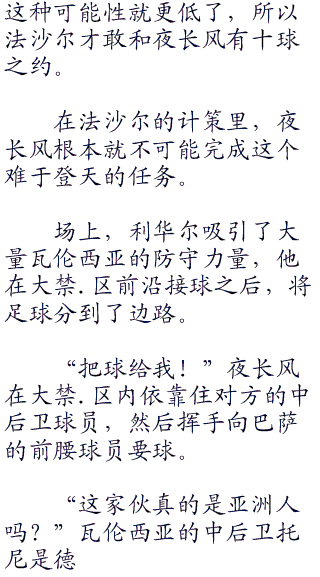 这种可能性就更低了，所以
法沙尔才敢和夜长风有十球
之约。
在法沙尔的计策里，夜
长风根本就不可能完成这个
难于登天的任务。
场上，利华尔吸引了大
量瓦伦西亚的防守力量，他
在大禁.区前沿接球之后，将
足球分到了边路。
“把球给我！”夜长风
在大禁.区内依靠住对方的中
后卫球员，然后挥手向巴萨
的前腰球员要球。
“这家伙真的是亚洲人
吗？”瓦伦西亚的中后卫托
尼是德